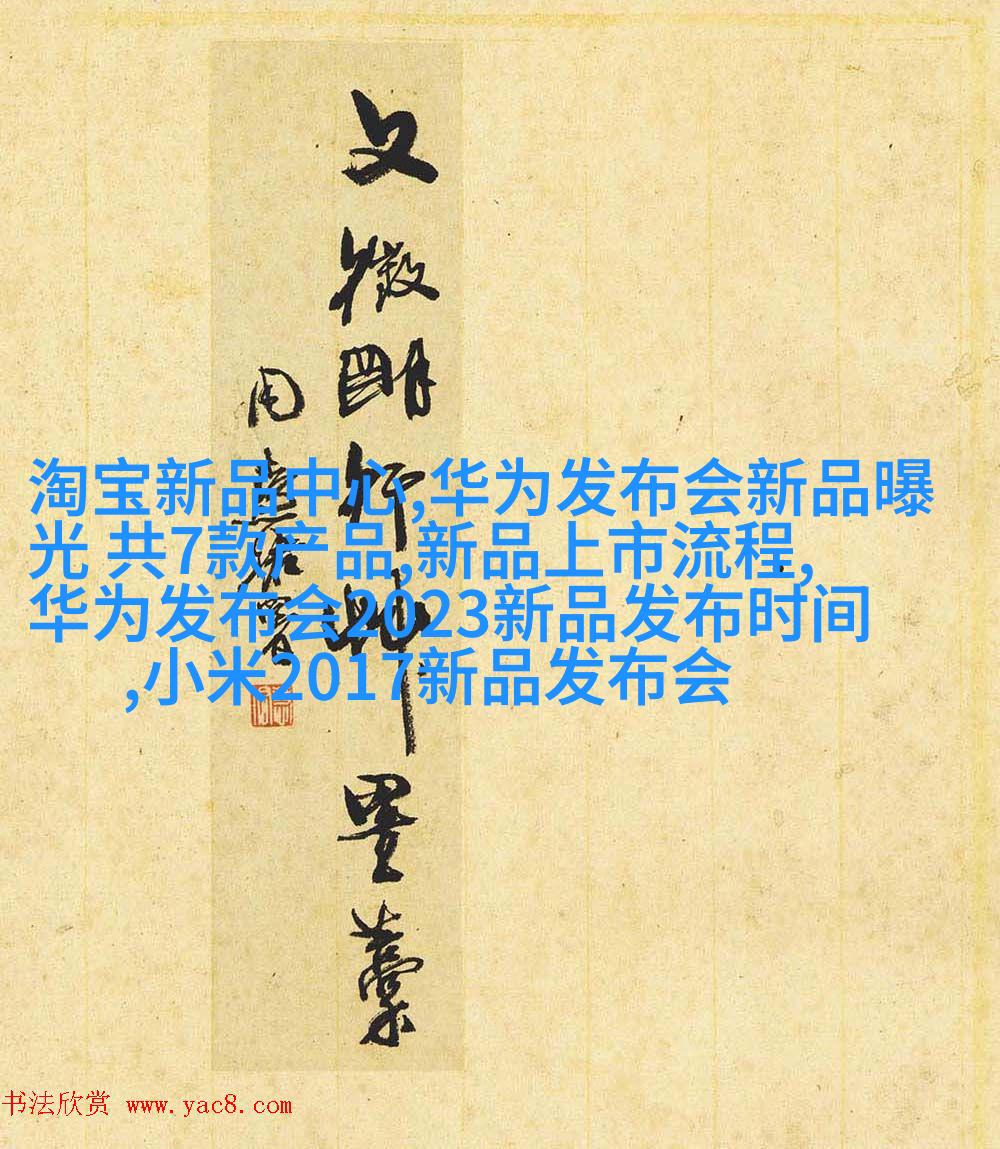 文徵明行墨藁
周
淘宝新品中心,华为发布会新品曝
光 共7款产品,新品上市流程,
华为发布会2023新品发布时间
,小米2017新品发布会
书法欣赏 www.yac8.com